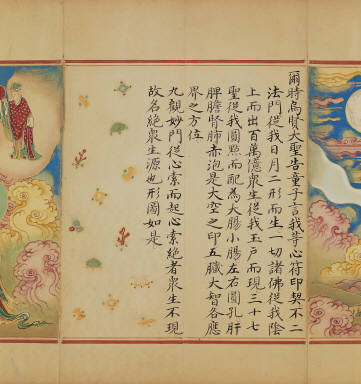 爾時烏賢大聖告童子言我等心符印契不二
法門從我日月二形而生一切諸佛從我陰
上而出百萬億衆生從我玉戶而現三十七
聖從我圓點而配為大腸小腸左右圓孔肝
脾膽腎肺赤泡是大空之印五臟大智各應
界之方位
九觀妙門從心索而起心索絕者衆生不現
故名絕衆生源也形圖如是